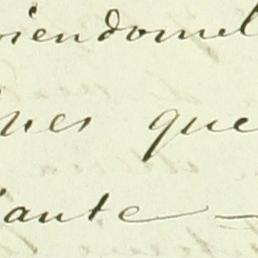 viendomel
ines que
iante